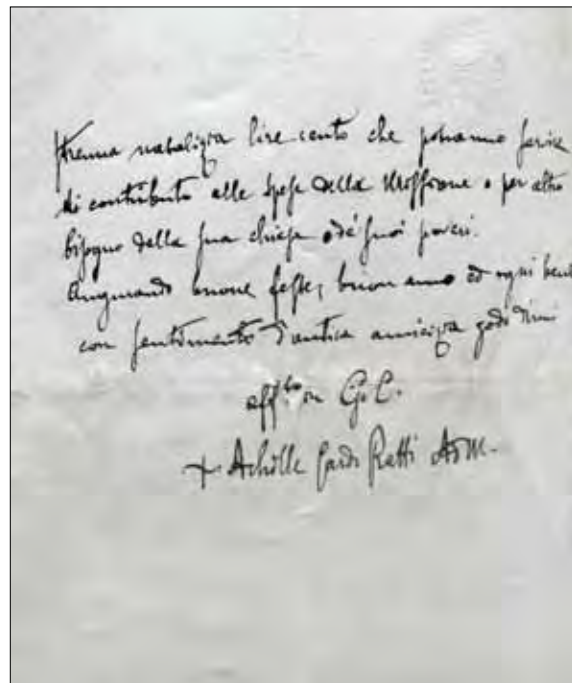 strenna natalizia lire cento che potranno servire
di contributo alle spese della Missione o per altro
bisogno della sua chiesa o de' suoi poveri.
Augurando buone feste, buon anno ed ogni bene
con sentimento d'antica amicizia godo dirmi
aff.to in G. C.
+ Achille Card. Ratti